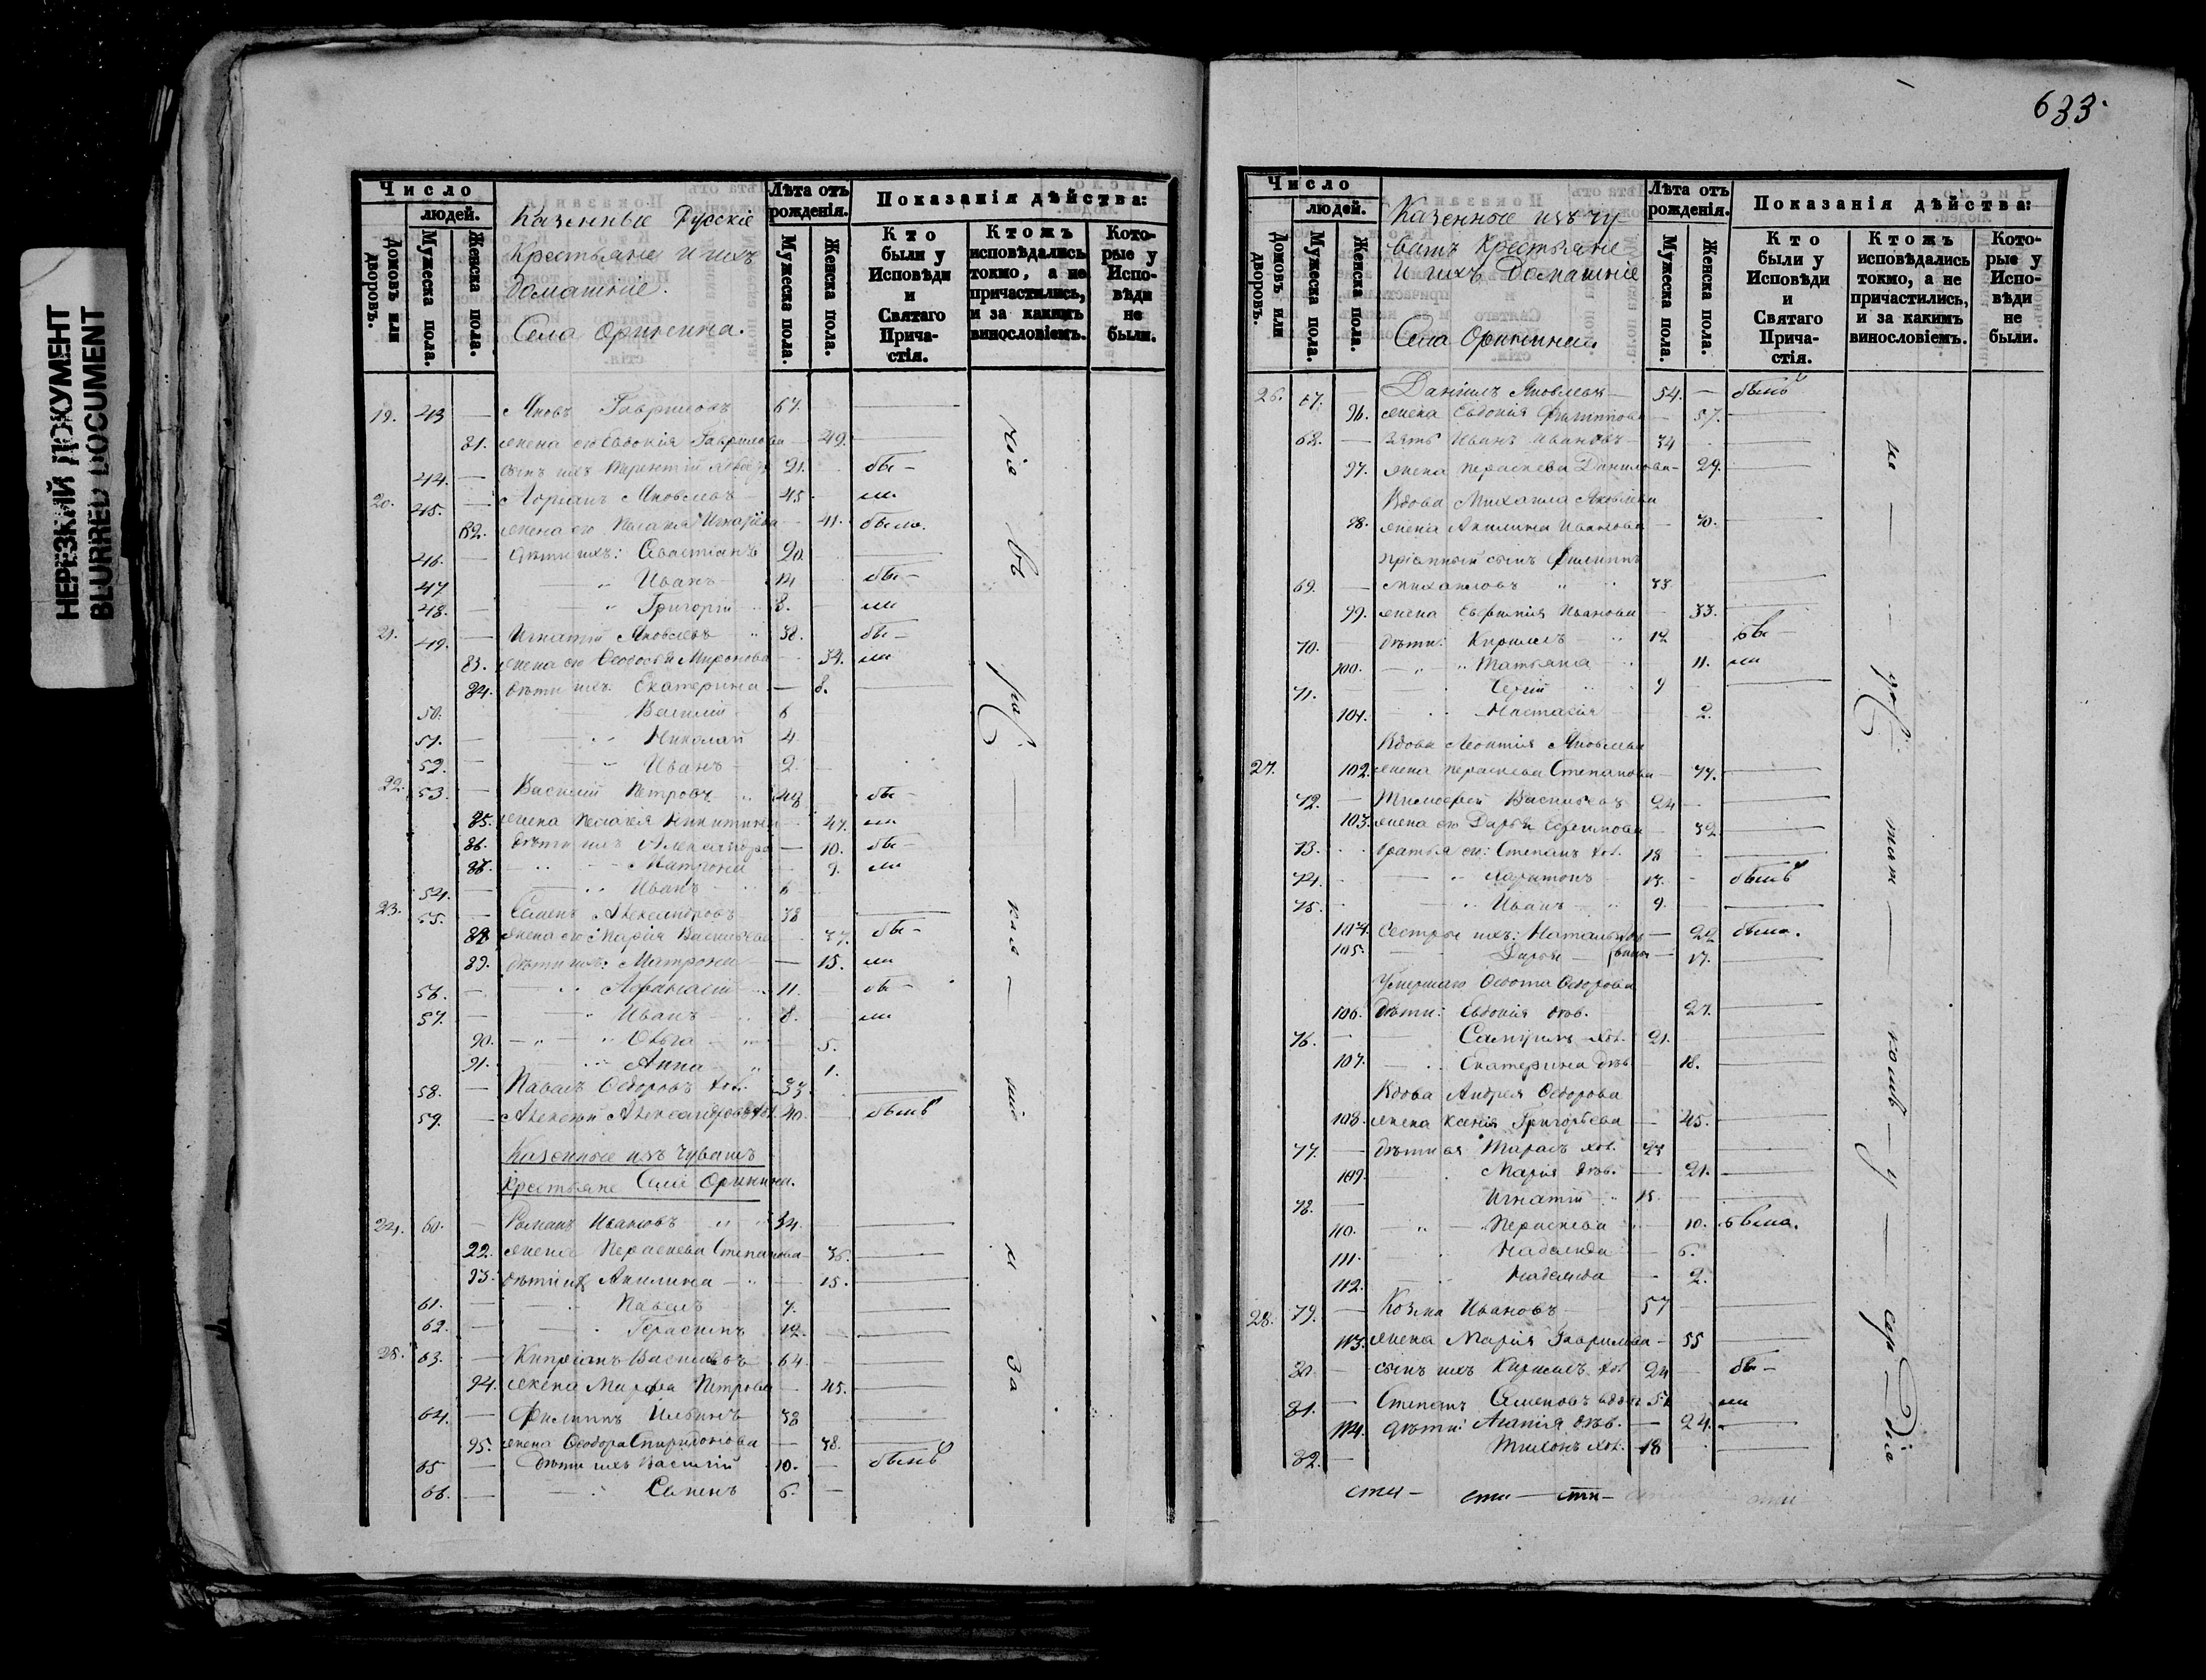 НЕРЕЗКИЙ ДОКУМЕНТ
BLURRED DOCUMENT
Число
людей.
Домовъ или дворовъ.
Мужеска пола.
Женска пола.
Казенные Русскіе
Крестьяне и ихъ
Домашніе.
Села Оринина.
Лѣта отъ рожденія.
Мужеска пола.
Женска пола.
Показанія дѣйства:
Кто были у Исповѣди и Святаго Прича-стія.
Ктожъ исповѣдались токмо, а не причастились, и за какимъ винословіемъ.
Кото-рые у Испо-вѣди не были.
19. 43 — Яковъ Гавриловъ 67.
81. жена его Евдокія Гаврилова — 49.
44. — сынъ ихъ Терентій 21. бы-
20. 45. — Яковлевъ 45 ли
82. жена его Пелагія Игнатіева — 41. были.
46. — дѣти ихъ: Савастіанъ 20.
47 Иванъ 14 бы-
48. Григорій 8. ли
21. 49. — Игнатій Яковлевъ 38. бы-
83. жена его Ѳеодосія Миронова — 34. ли
84. дѣти ихъ: Екатерина — 8.
50. Василій 6
51. — Николай 4.
52. — Иванъ 2.
22. 53. — Василій Петровъ 48 бы-
85. жена Пелагея Никитина — 47. ли
86. дѣти ихъ Александра — 10. бы-
87. Матрона 9. ли
54. — Иванъ 6
23. 55. — Семенъ Александровъ 38
88 жена его Марія Васильева 37. бы-
89. дѣти ихъ: Матрона — 15. ли
56. — Афанасій 11. бы-
57. Иванъ 8. ли
90. Ольга 5.
91. Анна 1.
58. — Павелъ Ѳедоровъ хол. 33.
59. — Алексѣй Александровъ хол. 40. былъ
Казенные изъ чувашъ
Крестьяне Села Оринина.
24. 60. — Романъ Ивановъ 34.
92. жена Пераскева Степанова 36.
93. дѣти ихъ Акилина — 15.
61. — Павелъ 7.
62. — Герасимъ 12.
25. 63. — Кипріанъ Васильевъ 64.
94. жена Марфа Петрова 45.
64. — Филиппъ Ильинъ 38
95. жена Ѳеодора Спиридонова — 38.
65 — дѣти ихъ Василій 10. — былъ
66. — Семенъ 6. —
633.
Число
людей.
Домовъ или дворовъ.
Мужеска пола.
Женска пола.
Казенные изъ чу
вашъ Крестьяне
и ихъ Домашніе
Села Оринина
Лѣта отъ рожденія.
Мужеска пола.
Женска пола.
Показанія дѣйства:
Кто были у Исповѣди и Святаго Прича-стія.
Ктожъ исповѣдались токмо, а не причастились, и за какимъ винословіемъ.
Кото-рые у Испо-вѣди не были.
26. 67. — Даніилъ Яковлевъ 54. — былъ
96. жена Евдокія Филиппова — 57.
68. — зять Иванъ Ивановъ 34
97. жена Пераскева Данилова — 29.
Вдова Михаила Яковлева
98. жена Акилина Иванова — 70.
пріемный сынъ Филиппъ
69. — Михаиловъ 33.
99. жена Евфимія Иванова — 33.
70. — дѣти: Кирилъ 12 бы-
100. Татьяна 11. ли
71. Сергій 9
101. Настасія 2.
Вдова Леонтія Яковлева
27. 102. жена Пераскева Степанова — 77.
72. — Тимоѳей Васильевъ 24
103. жена его Дарья Ефремова — 32.
73. братья его: Степанъ хол. 18
74. Харитонъ 13. — былъ
75. — Иванъ 9.
104. Сестры ихъ: Наталья — 22 была.
105. — Дарья — 17.
Умершаго Ѳедота Ѳедорова
106. дѣти: Евдокія дѣв. 27.
76. — Самуилъ хол. 21.
107. Екатерина дѣв. 18.
Вдова Андрея Ѳедорова
108. жена Ксенія Григорьева — 45.
77. — дѣти ея Тарасъ хол. 23
109. Марія дѣв. — 21.
78. — Игнатій 15.
110. Пераскева 10. была.
111. Надежда 6.
112. Надежда 2.
28. 79. — Козма Ивановъ 57
113. жена Марія Гаврилова — 55
80 — сынъ ихъ Кирилъ хол 24 бы-
81. — Степанъ Семеновъ вдовъ 51 ли
114. дѣти: Агапія дѣв. — 24.
82. — Тихонъ хол. 18
сти — сти — сти —